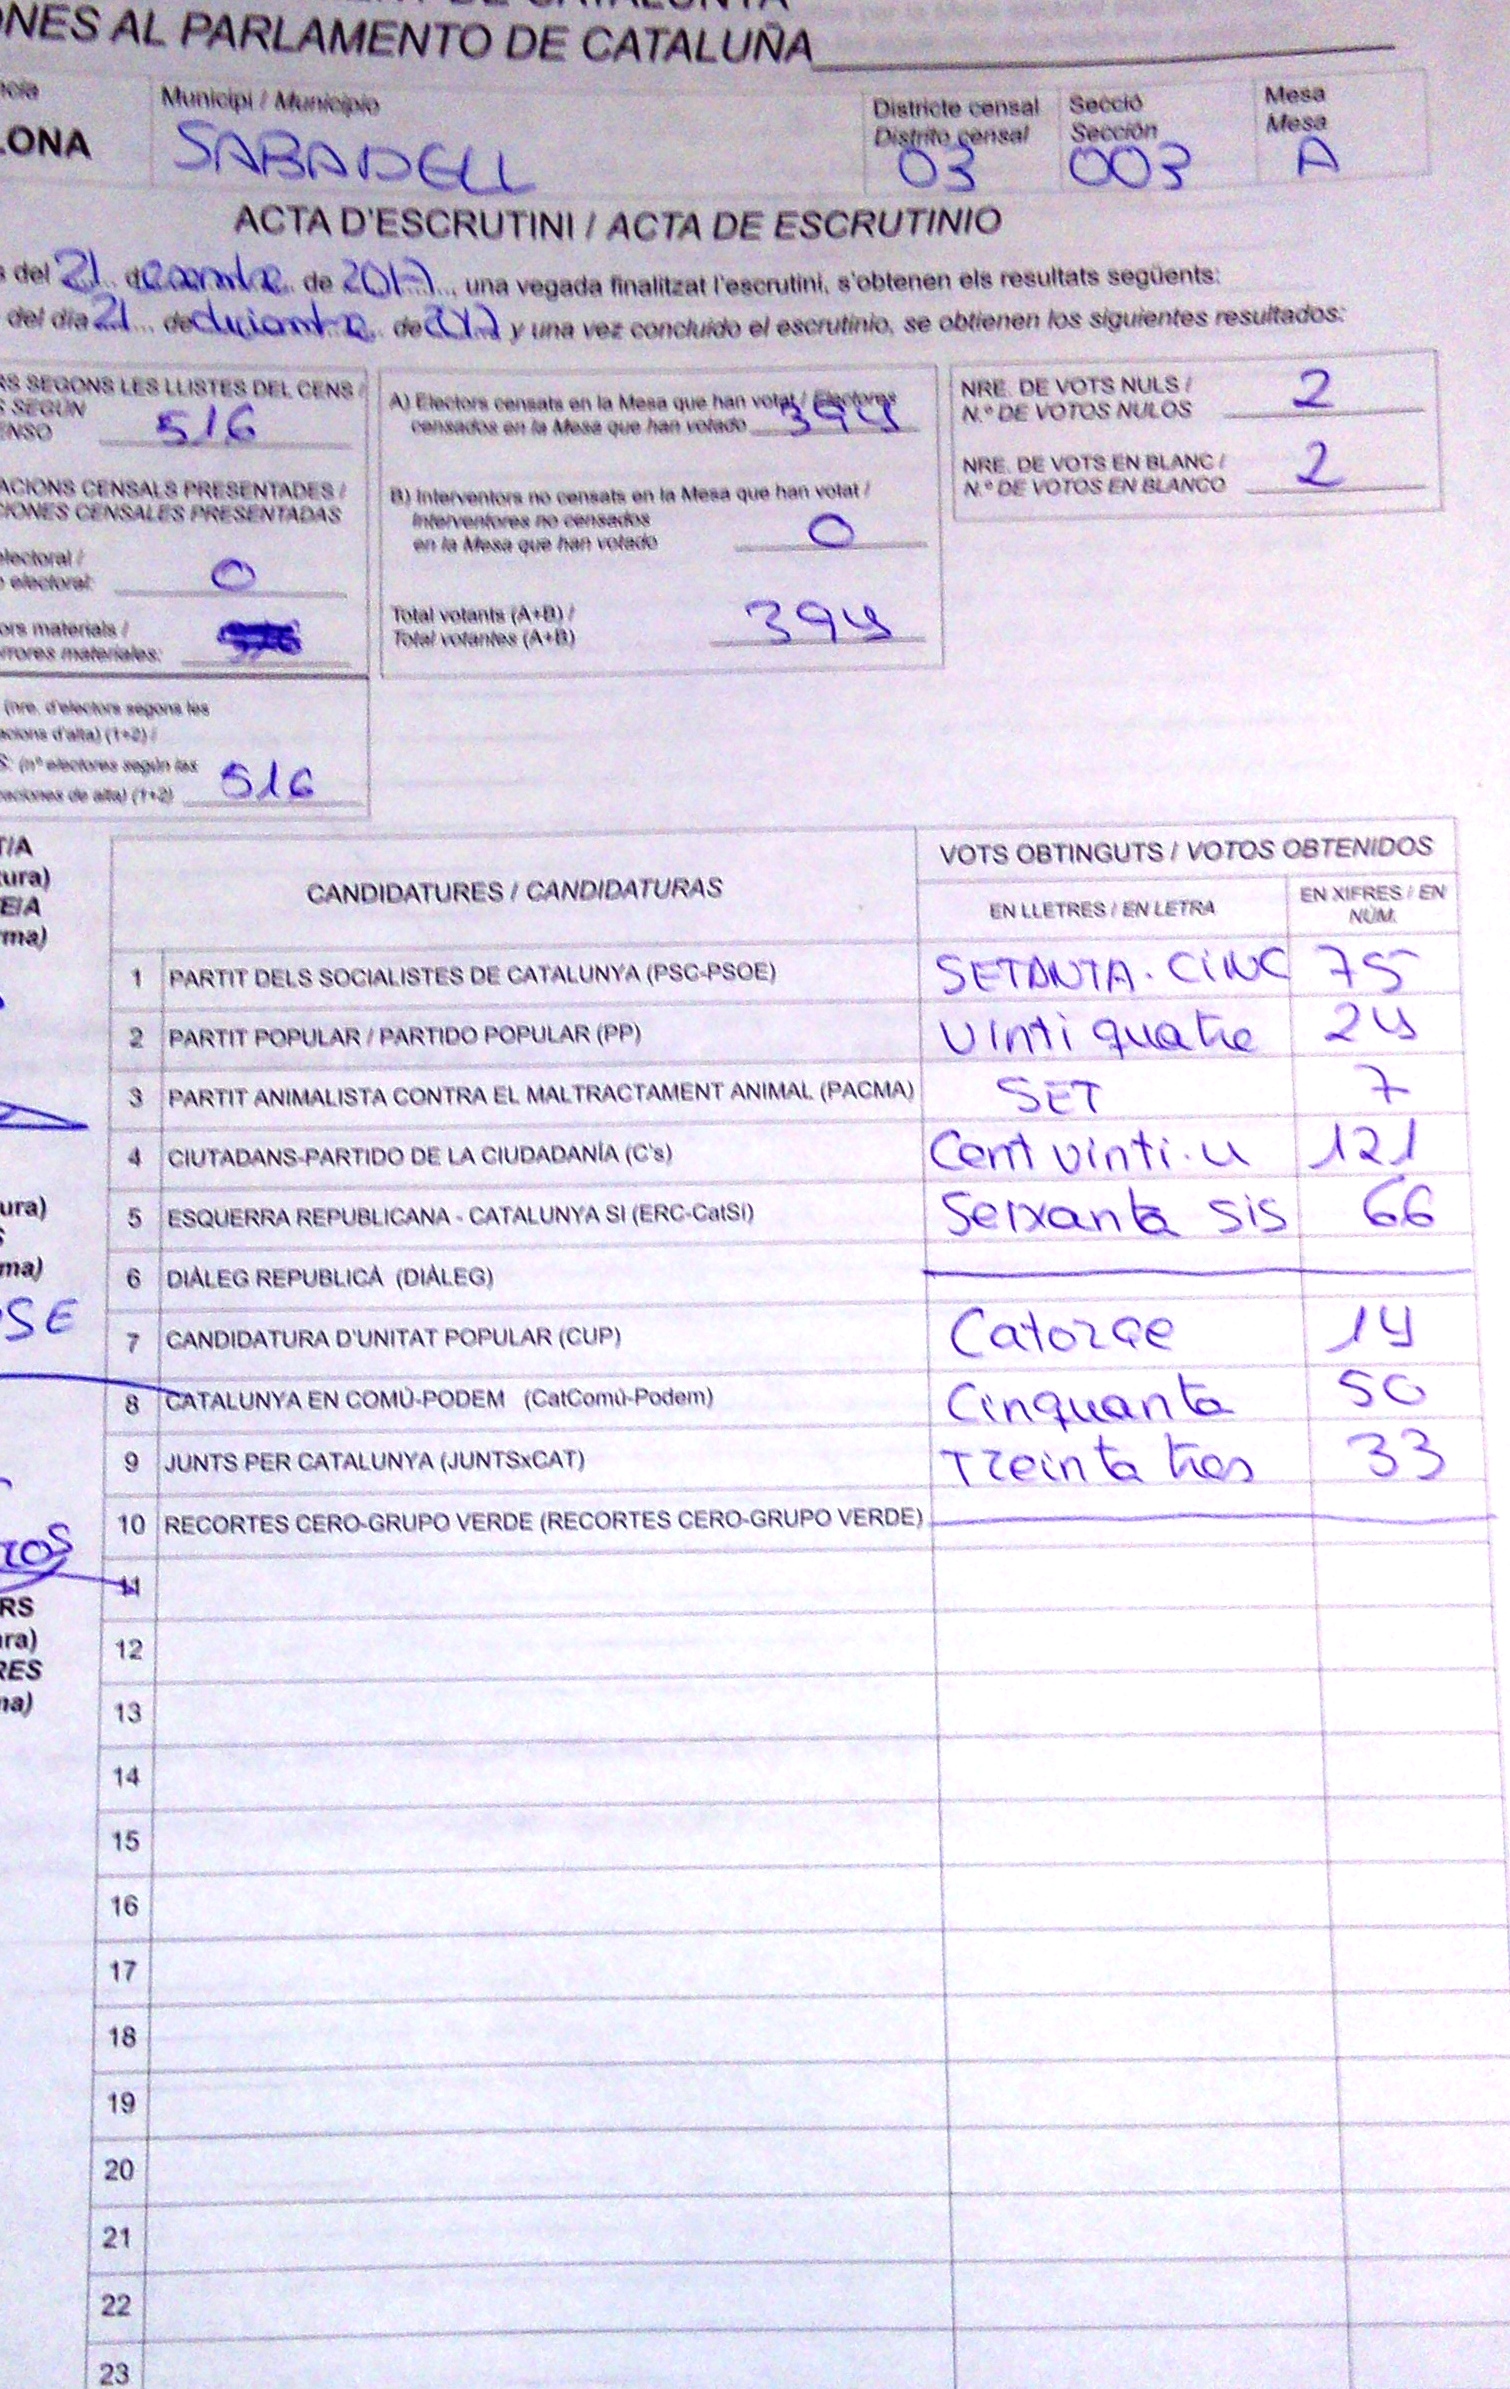 ONES AL PARLAMENTO DE CATALUÑA
Municipi / Municipio
SABADELL
Districte censal
Distrito censal
03
Secció
Sección
003
Mesa
Mesa
A
LONA
ACTA D'ESCRUTINI / ACTA DE ESCRUTINIO
s del 21 de de 2017, una vegada finalitzat l'escrutini, s'obtenen els resultats següents:
del día 21 de de y una vez concluido el escrutinio, se obtienen los siguientes resultados:
RS SEGONS LES LLISTES DEL CENS /
S SEGÚN
ENSO 516
ACIONS CENSALS PRESENTADES /
CIONES CENSALES PRESENTADAS
electoral /
o electoral: 0
ors materials /
rrores materiales:
(nre. d'electors segons les
acions d'alta) (1+2) /
S: (nº electores según las
raciones de alta) (1+2) 516
A) Electors censats en la Mesa que han votat / Electores
censados en la Mesa que han votado 394
B) Interventors no censats en la Mesa que han votat /
Interventores no censados
en la Mesa que han votado 0
Total votants (A+B) /
Total votantes (A+B) 394
NRE. DE VOTS NULS /
N.º DE VOTOS NULOS 2
NRE. DE VOTS EN BLANC /
N.º DE VOTOS EN BLANCO 2
T/A
tura)
E/A
rma)
CANDIDATURES / CANDIDATURAS
VOTS OBTINGUTS / VOTOS OBTENIDOS
EN LLETRES / EN LETRA
EN XIFRES / EN
NÚM.
1 PARTIT DELS SOCIALISTES DE CATALUNYA (PSC-PSOE) SETANTA. CINC 75
2 PARTIT POPULAR / PARTIDO POPULAR (PP) Vinti quatre 24
3 PARTIT ANIMALISTA CONTRA EL MALTRACTAMENT ANIMAL (PACMA) SET 7
4 CIUTADANS-PARTIDO DE LA CIUDADANÍA (C's) Cent vinti.u 121
5 ESQUERRA REPUBLICANA - CATALUNYA SI (ERC-CatSí) Seixanta sis 66
6 DIÀLEG REPUBLICÀ (DIÀLEG)
7 CANDIDATURA D'UNITAT POPULAR (CUP) Catorce 14
8 CATALUNYA EN COMÚ-PODEM (CatComú-Podem) Cinquanta 50
9 JUNTS PER CATALUNYA (JUNTSxCAT) Treinta tres 33
10 RECORTES CERO-GRUPO VERDE (RECORTES CERO-GRUPO VERDE)
11
12
13
14
15
16
17
18
19
20
21
22
23
ura)
S
ma)
OSE
ros
RS
ura)
RES
ma)